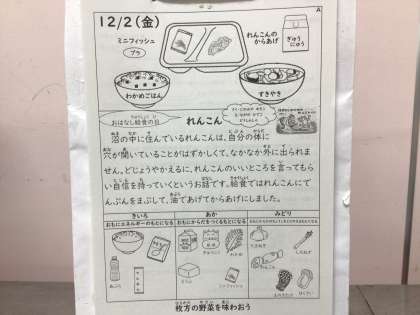 A
12/2(金)
ミニフィッシュ
プラ
れんこんの
からあげ
ぎゅう
にゅう
わかめごはん
すきやき
おはなし給食の日
れんこん
沼の中に住んでいるれんこんは、自分の体に
穴が開いていることがはずかしくて、なかなか外に出られま
せん。どじょうやかえるに、れんこんのいいところを言ってもら
い自信を持っていくというお話です。給食ではれんこんにで
んぷんをまぶして、油であげてからあげにしました。
きいろ
あか
みどり
おもにエネルギーのもとになる
おもにからだをつくるもとになる
ミニフィッシュ
たまねぎ
れんこん
はくさい
枚方の野菜を味わおう